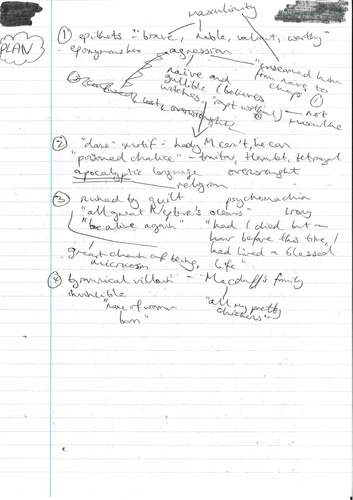 masculinity
PLAN
① epithets - "brave, noble, valiant, worthy"
eponymous hero aggression "unseamed him
from nave to
chaps"
naive and
gullible (believes
witches, "rapt withal") not
masculine
overwrought
② "dare" motif - Lady M can't, he can
"poisoned chalice" - traitor, Hamlet, betrayal
apocalyptic language overwrought
religion
③ ruined by guilt psychomachia
"all great Neptune's ocean" irony
"be alive again" "had I died but an
hour before this time, I
had lived a blessed
life"
great chain of being,
microcosm
④ tyrannical villain - Macduff's family
invincible "all my pretty
chickens"
"none of woman
born"